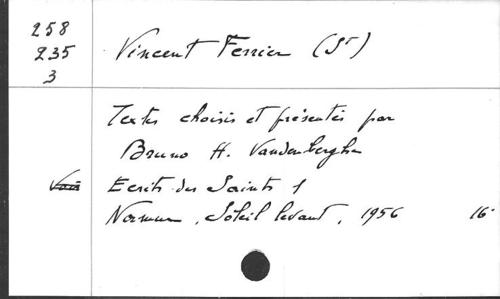 258
235
3
Vincent Ferrier (St)
Textes choisis et présentés par
Bruno H. Vandenberghe
Voir
Ecrits des Saints
Soleil levant, 1956 16°